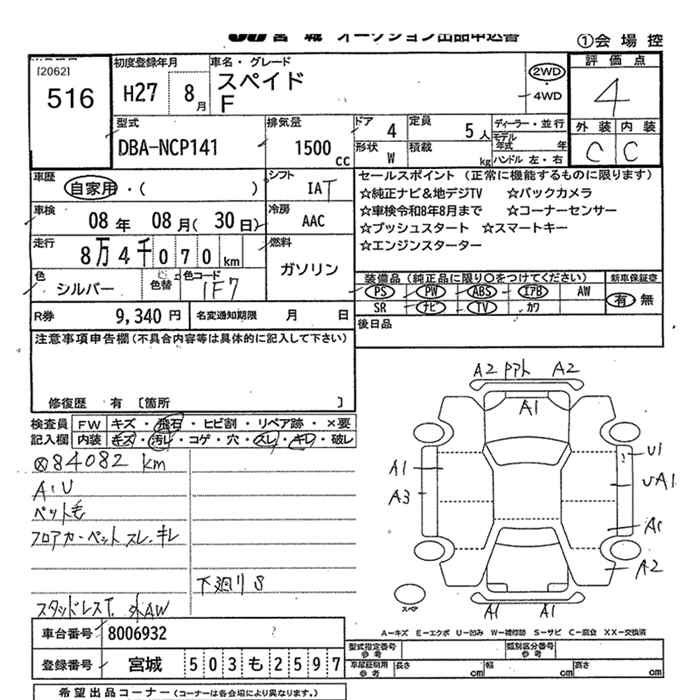 JU 宮 城 オークション出品申込書
①会 場 控
[2062]
516
初度登録年月
H27 8月
車名・グレード
スペイド
F
2WD
4WD
評 価 点
4
型式
DBA-NCP141
排気量
1500 cc
ドア 4
定員 5人
ディーラー・並行
モデル年式 年
形状 W
積載 kg
ハンドル 左・右
外 装 内 装
C C
車歴
自家用・( )
シフト
IAT
セールスポイント (正常に機能するものに限ります)
☆純正ナビ&地デジTV ☆バックカメラ
☆車検令和8年8月まで ☆コーナーセンサー
☆プッシュスタート ☆スマートキー
☆エンジンスターター
車検
08 年 08 月( 30 日)
冷房
AAC
走行
8万4千070km
燃料
ガソリン
色
シルバー
色替
色コード
1F7
装備品 (純正品に限り○をつけてください)
新車保証書
PS PW ABS エアB AW
有 無
SR ナビ TV カワ
R券 9,340 円
名変通知期限 月 日
後日品
注意事項申告欄 (不具合内容等は具体的に記入して下さい)
修復歴 有 〔箇所 〕
検査員 FW キズ・飛石・ヒビ割・リペア跡・×要
記入欄 内装 キズ・汚レ・コゲ・穴・スレ・キレ・破レ
84082 km
A・U
ペット毛
フロアカーペット スレ・キレ
下廻りS
スタッドレスT. 外AW
A2 A2
A1
A1
A3
U1
UA1
A1
A2
A1 A1
スペア
A—キズ E—エクボ U—凹み W—補修跡 S—サビ C—腐食 XX—交換済
車台番号 8006932
登録番号 宮城 503も2597
型式指定番号
参考
類別区分番号
参考
車庫証明用
参考
長さ cm
幅 cm
高さ cm
希望出品コーナー (コーナーは各会場により異なります。)